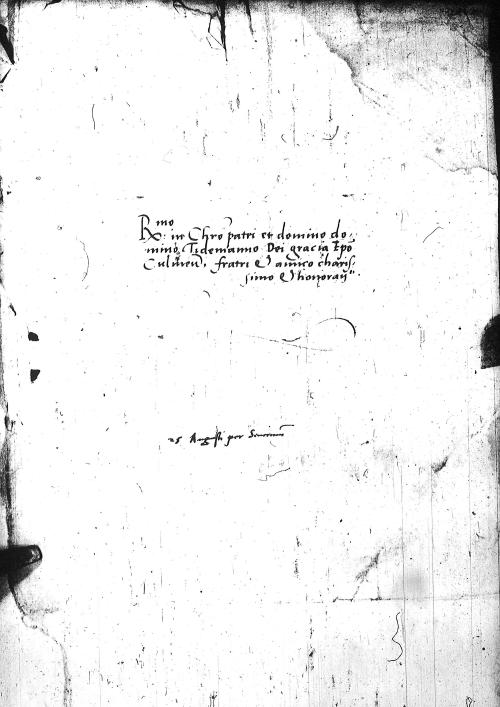 R mo
in Chro patri et domino do:
mino, Tidemanno Dei gracia Epo
Culmen̄, fratri & amico charis:
simo & honoran̄
25 Augusti per